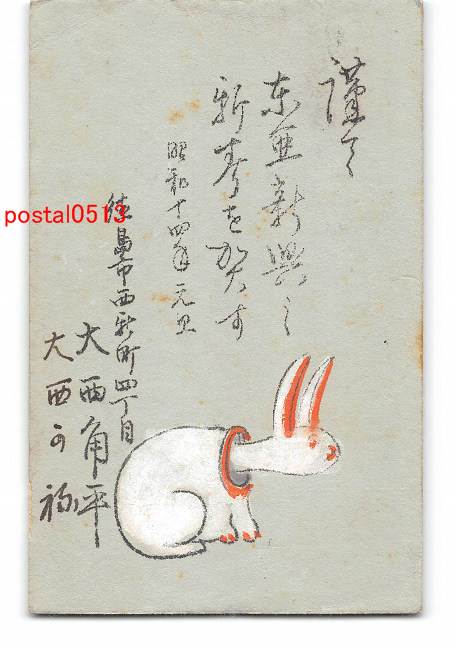 謹みて
東亜新興之
新春を賀す
昭和十四年元旦
徳島市西新町四丁目
大西角平
大西
postal0513